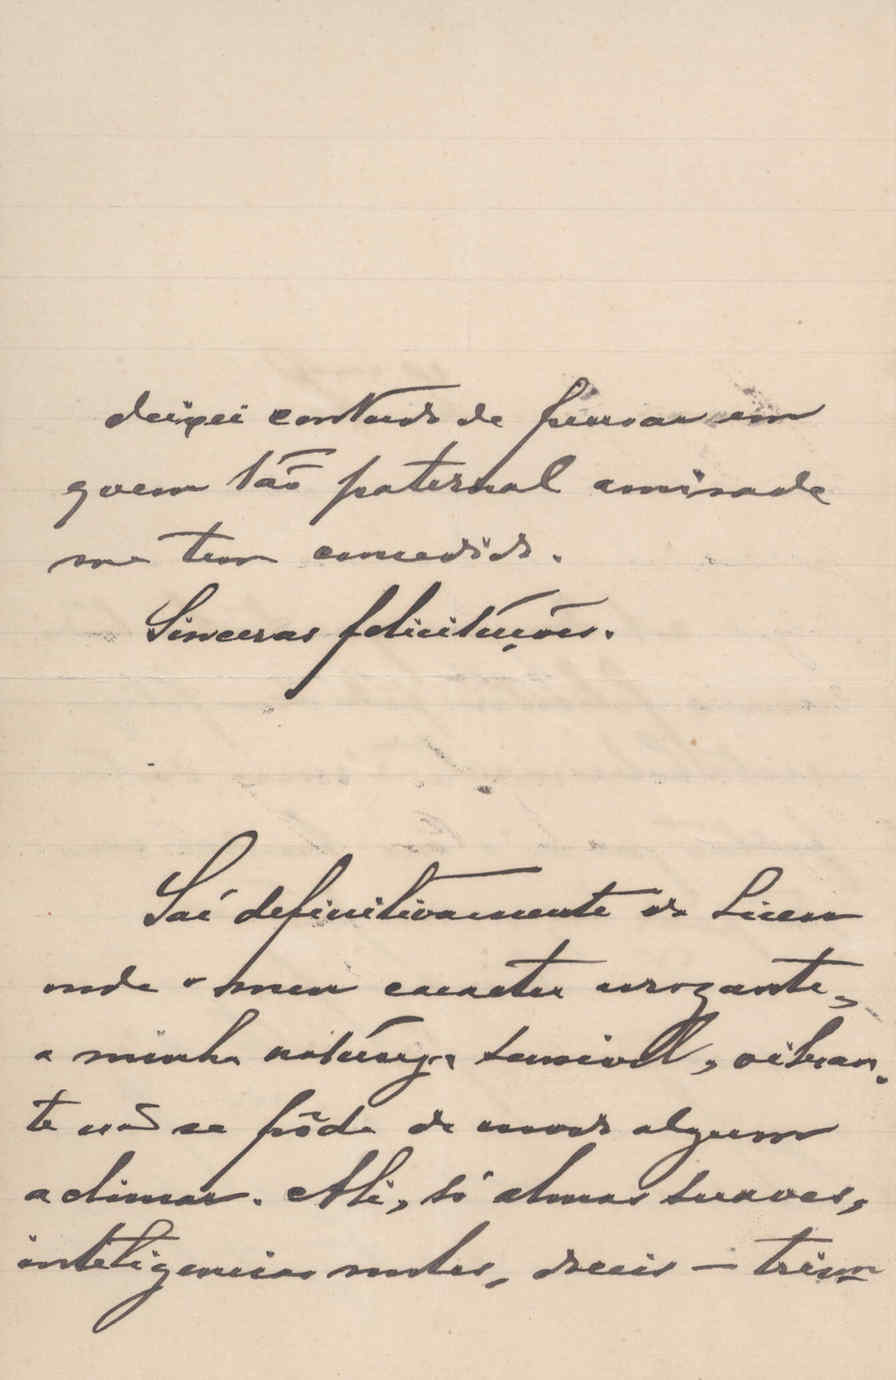 deixei contudo de pensar em
quem tão paternal amisade
me tem concedido.
Sinceras felicitações.
Saí definitivamente do Liceu
onde o meu caracter arrogante,
a minha natureza sensivel, vibran-
te não se pôde de modo algum
aclimar. Ali, só almas suaves,
inteligencias moles, doceis — trium